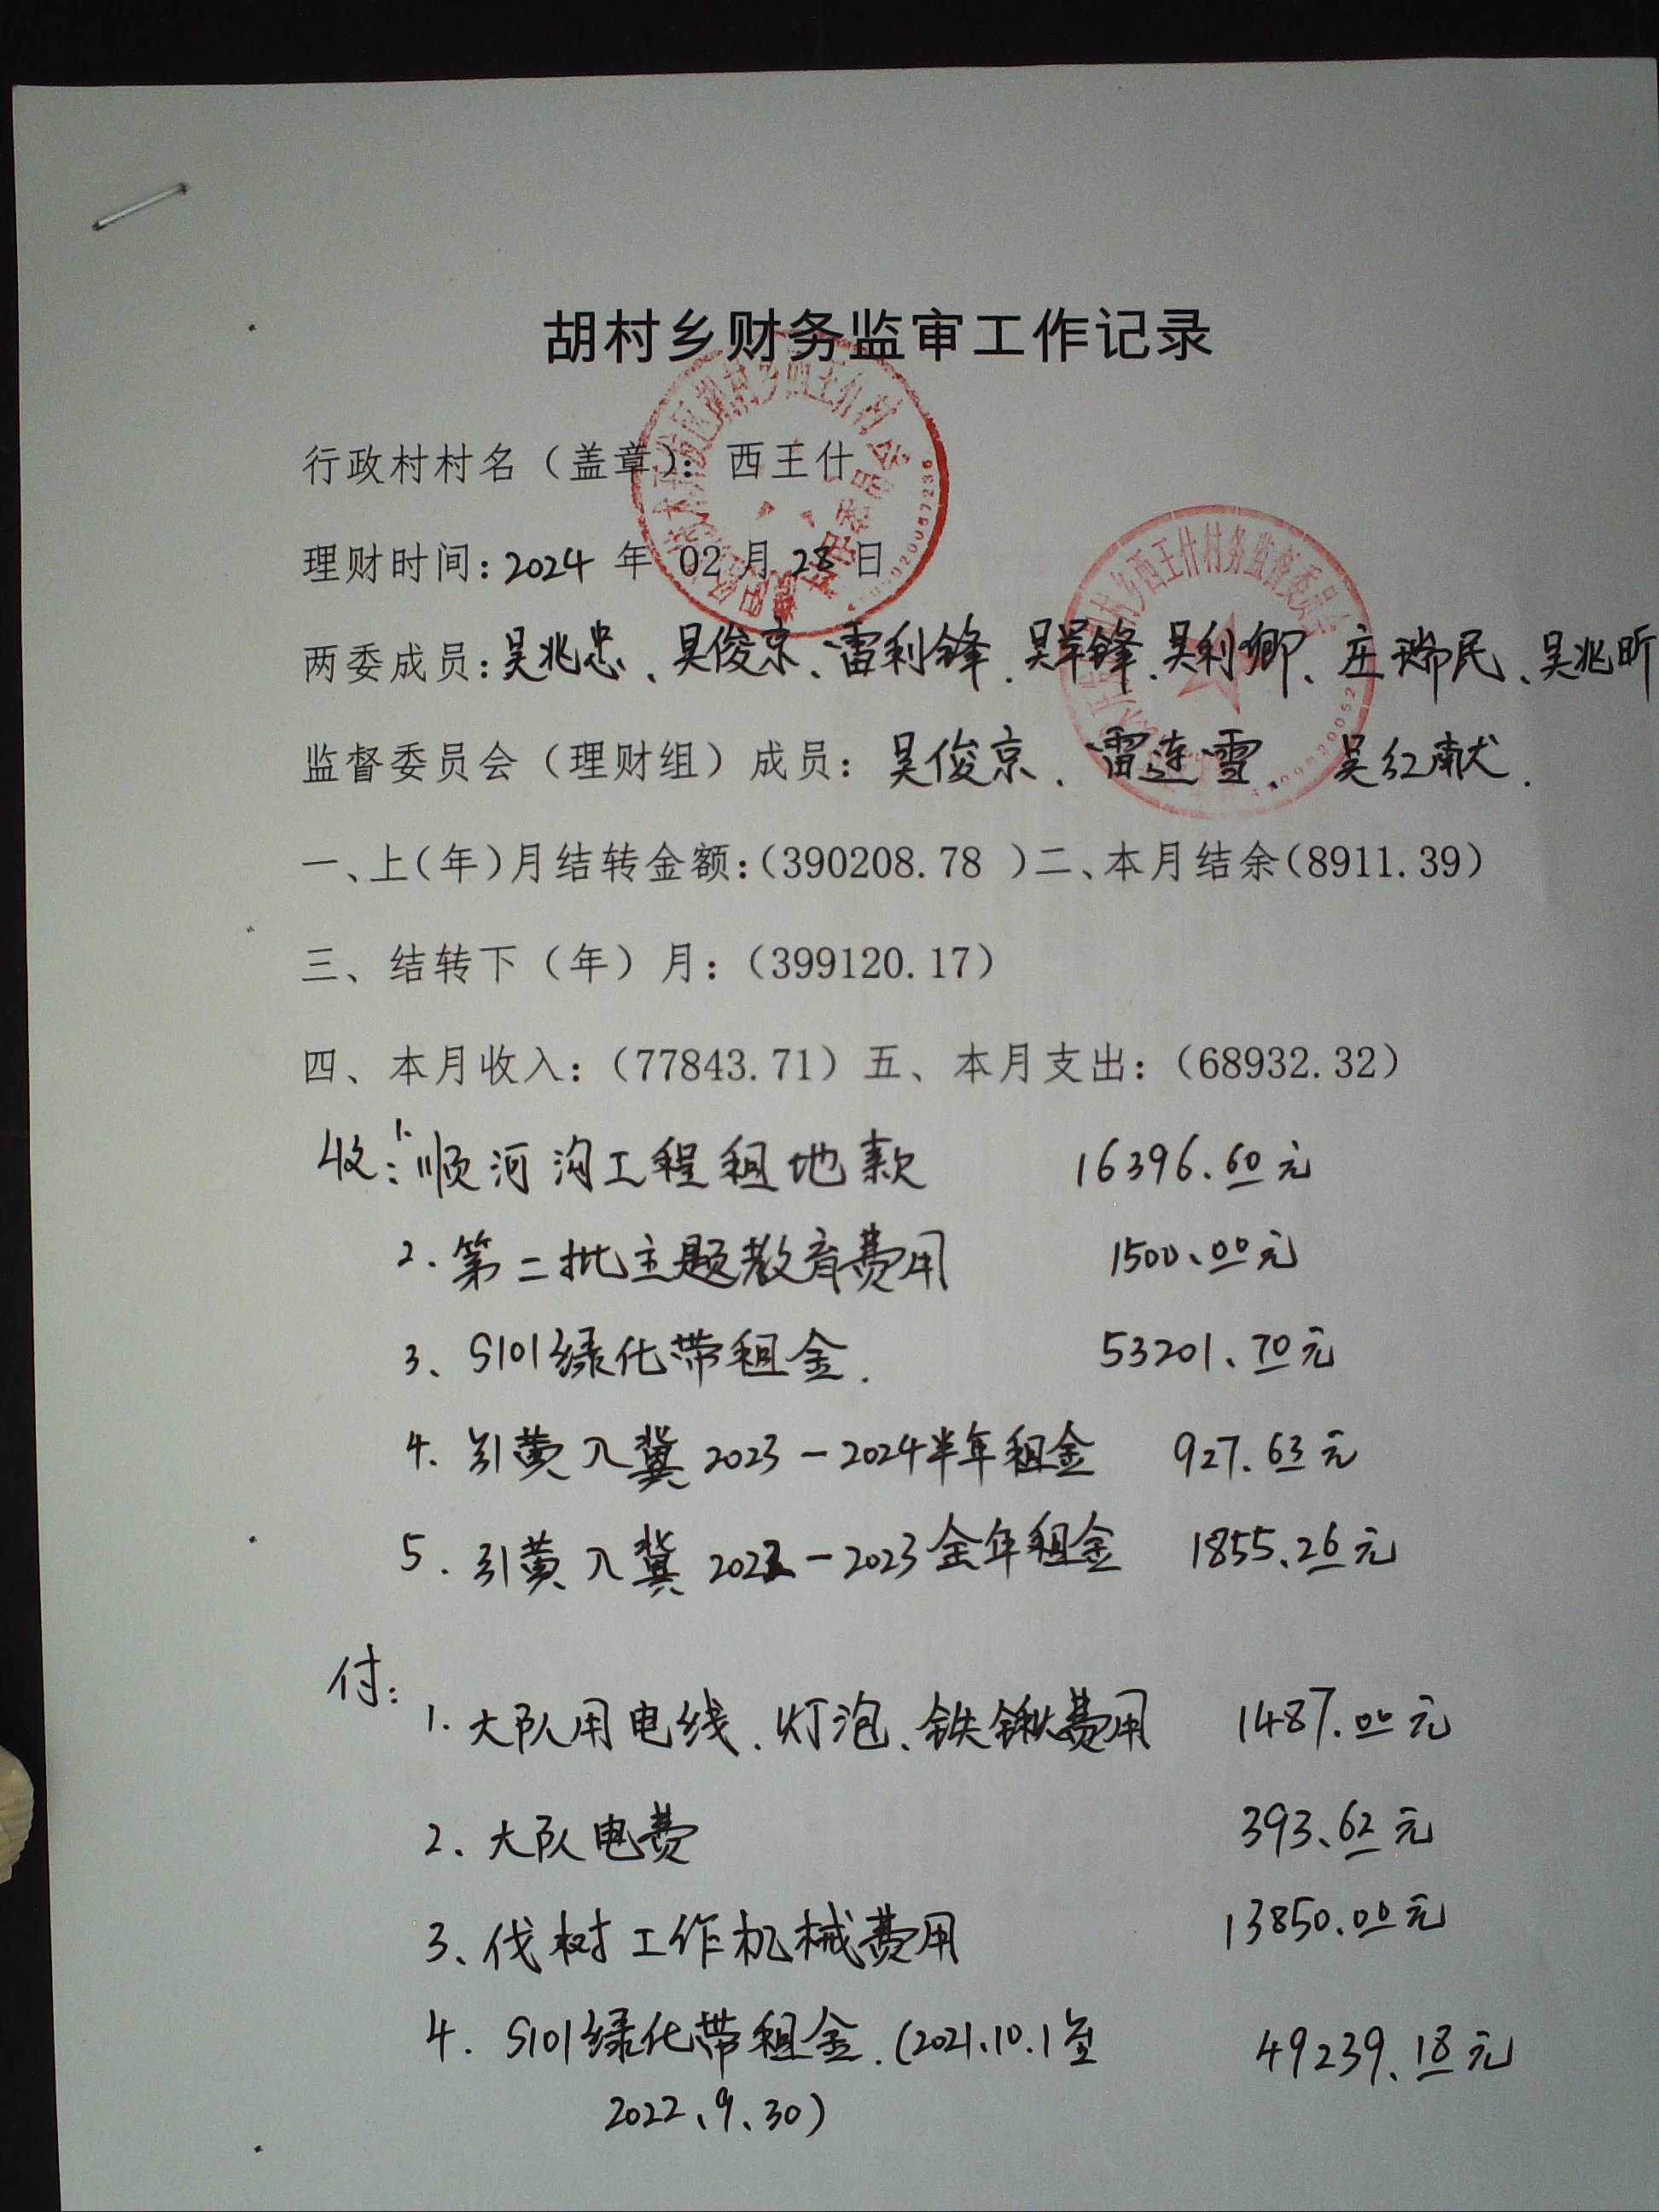 胡村乡财务监审工作记录
行政村村名（盖章）： 西王什
理财时间：2024 年 02 月 28 日
两委成员：吴兆忠、吴俊京、雷利锋、吴军锋、吴利卿、庄瑞民、吴兆昕
监督委员会（理财组）成员：吴俊京、雷连雪、吴红献.
一、上（年）月结转金额：（390208.78 ）二、本月结余（8911.39）
三、结转下（年）月：（399120.17）
四、本月收入：（77843.71）五、本月支出：（68932.32）
收：1.顺河沟工程租地款 16396.60元
2.第二批主题教育费用 1500.00元
3、S101绿化带租金. 53201.70元
4.引黄入冀2023-2024半年租金 927.63元
5.引黄入冀2022-2023全年租金 1855.26元
付：
1.大队用电线、灯泡、铁锹费用 1487.00元
2、大队电费 393.62元
3、伐树工作机械费用 13850.00元
4.S101绿化带租金.（2021.10.1至 49239.18元
2022.9.30）